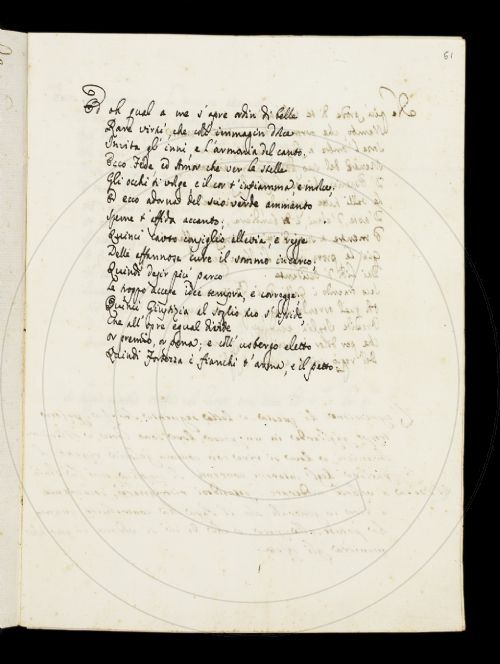 61
6
Ed oh qual a me s'apre ordin di belle
Rare virtù, che coll'immagin dolce
Invita gl'inni e l'armonia del canto.
Ecco Fede ed Amor che ver le stelle
Gli occhi ti volge e il cor t'infiamma e molce;
Ed ecco adorna del suo verde ammanto
Speme t'assida accanto:
Quinci cauto consiglio allevia, e regge
Delle affannose cure il sommo incarco,
Quindi desir più parco
Le troppo accese idee tempra, e corregge:
Quinci Giustizia al soglio tuo s'asside,
Che all'opre egual divide
Or premio, or pena; e coll'usbergo eletto
Quindi Fortezza i fianchi t'arma, e il petto.